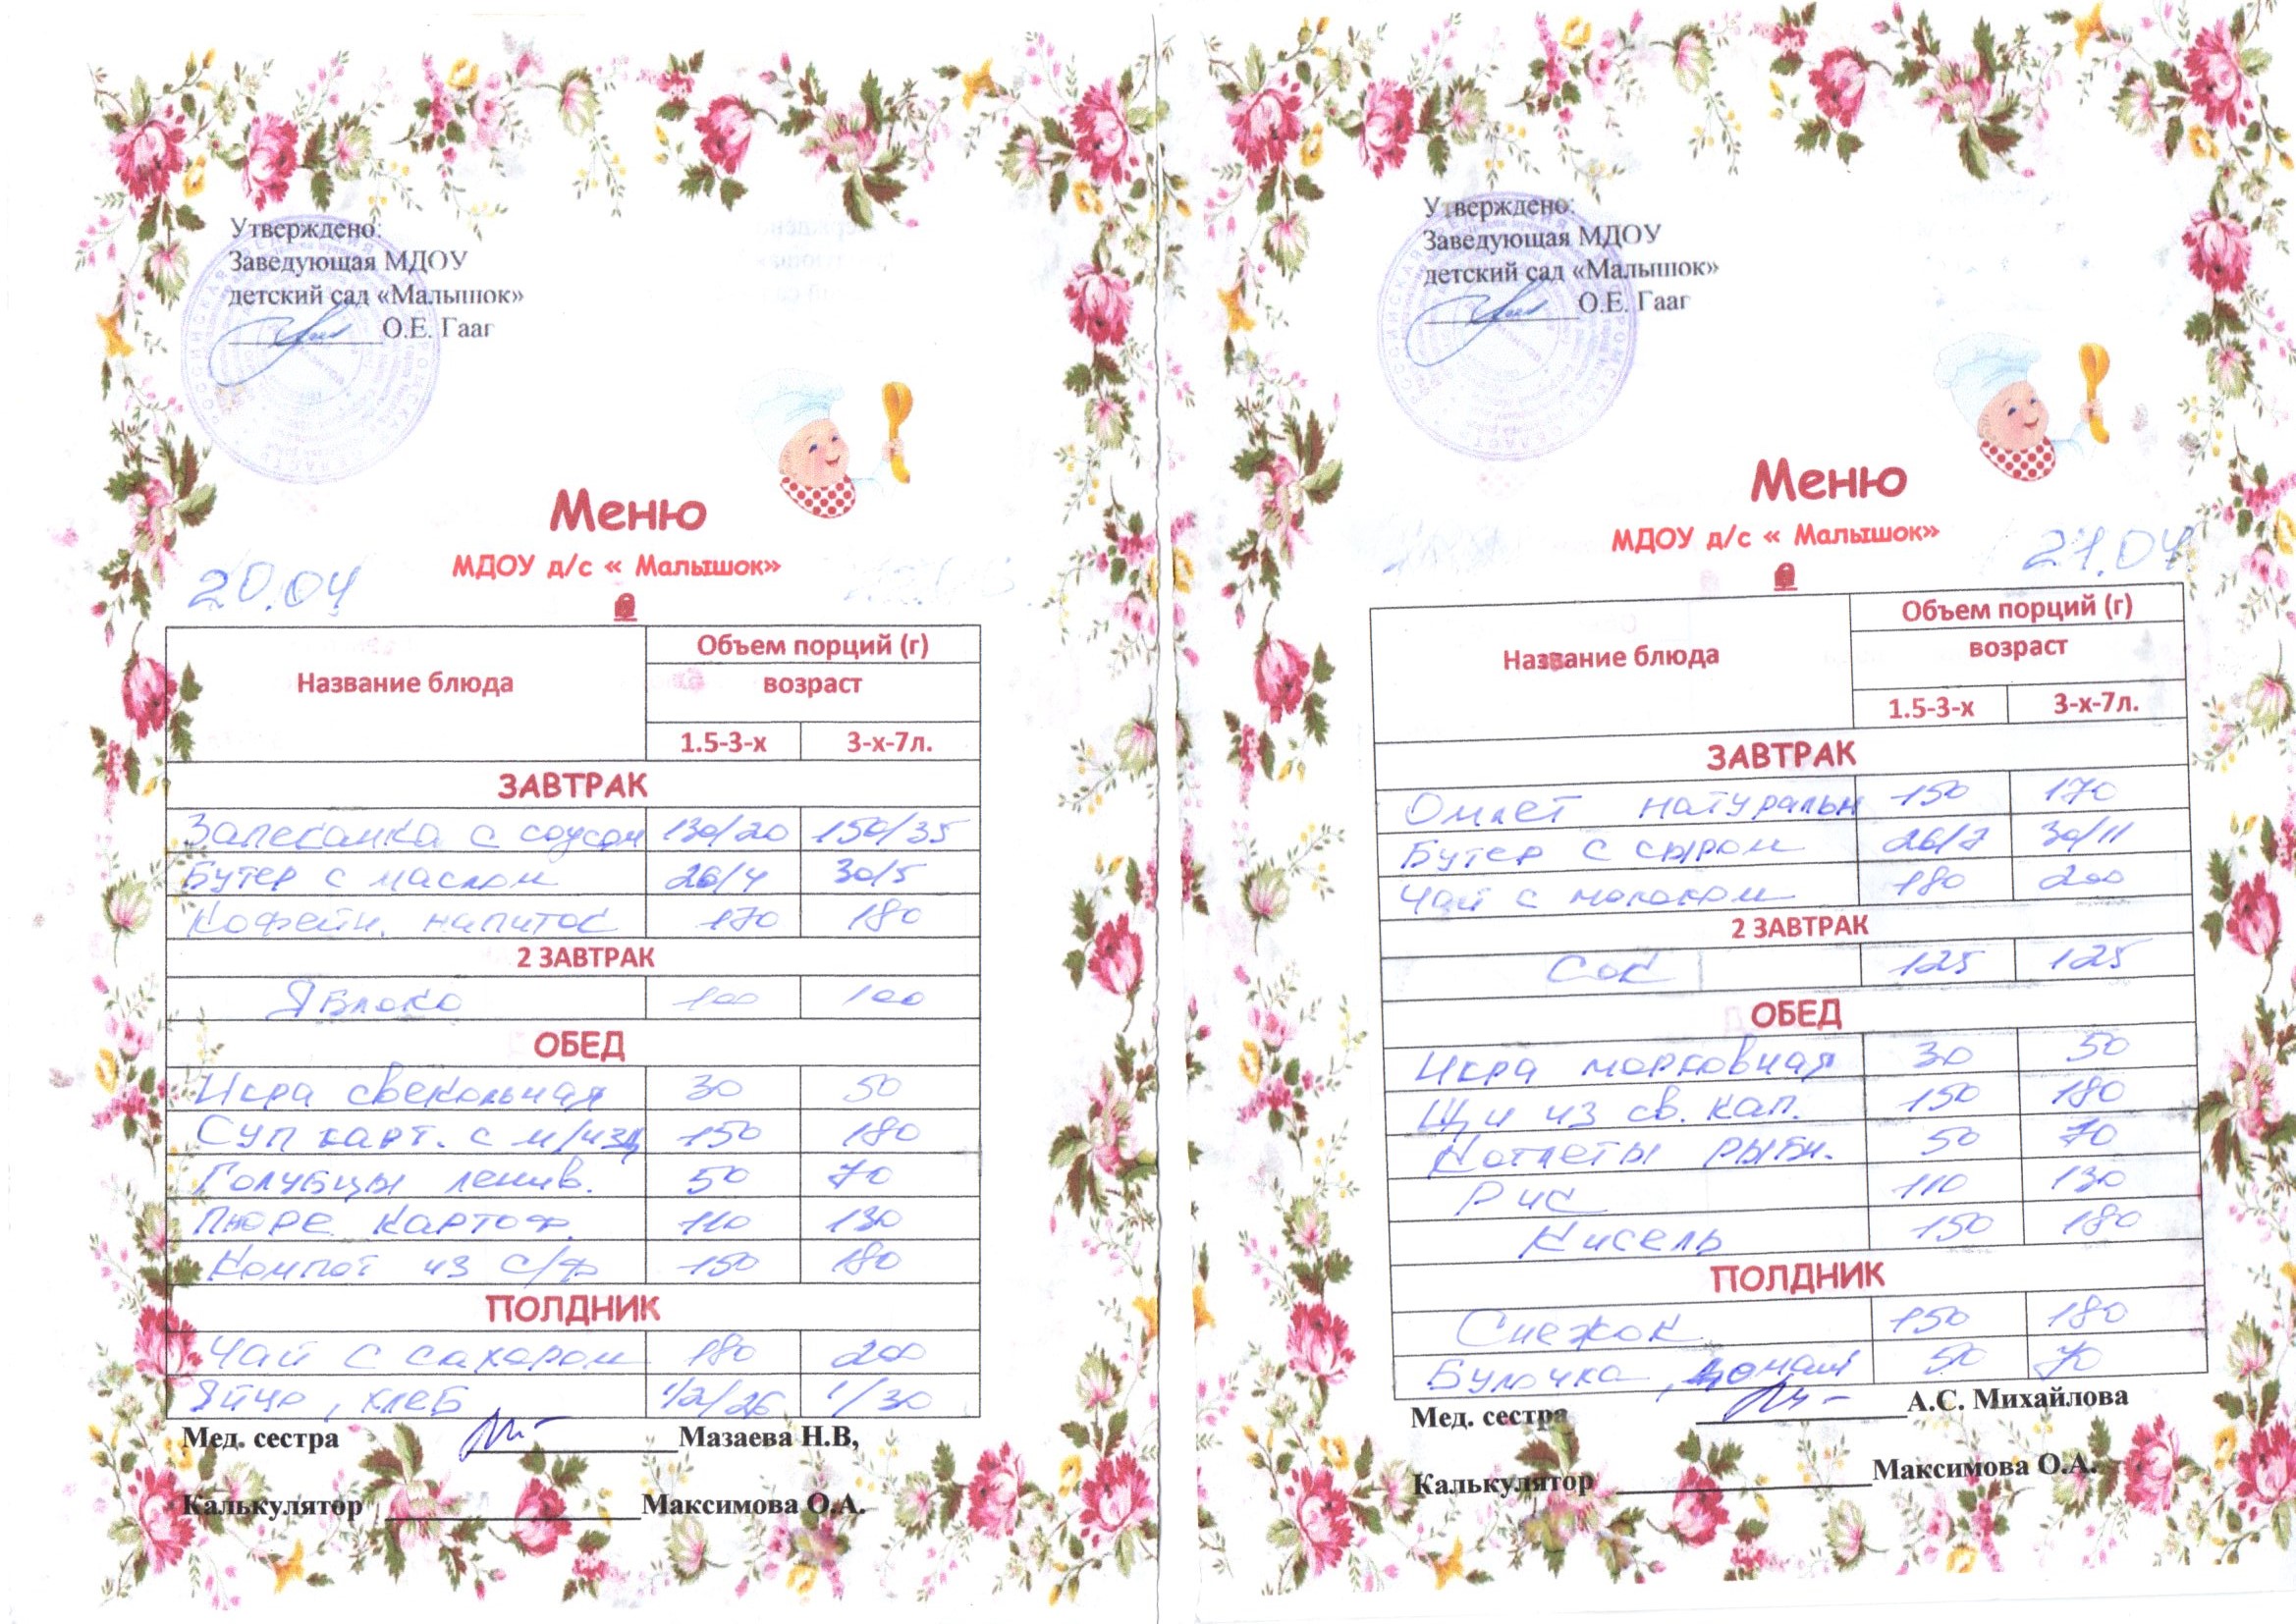 Утверждено:
Заведующая МДОУ
детский сад «Малышок»
О.Е. Гааг
Меню
МДОУ д/с « Малышок»
20.04
Название блюда
Объем порций (г)
возраст
1.5-3-х 3-х-7л.
ЗАВТРАК
Запеканка с соусом 130/20 150/35
Бутер с маслом 26/4 30/5
Кофейн. напиток 170 180
2 ЗАВТРАК
Яблоко 100 100
ОБЕД
Икра свекольная 30 50
Суп карт. с м/изд 150 180
Голубцы ленив. 50 70
Пюре картоф. 110 130
Компот из с/ф 150 180
ПОЛДНИК
Чай с сахаром 180 200
Яйцо, хлеб 1/2/26 1/30
Мед. сестра Мазаева Н.В,
Калькулятор Максимова О.А.
Утверждено:
Заведующая МДОУ
детский сад «Малышок»
О.Е. Гааг
Меню
МДОУ д/с « Малышок»
21.04
Название блюда
Объем порций (г)
возраст
1.5-3-х 3-х-7л.
ЗАВТРАК
Омлет натуральн 150 170
Бутер с сыром 26/7 30/11
Чай с молоком 180 200
2 ЗАВТРАК
Сок 125 125
ОБЕД
Икра морковная 30 50
Щи из св. кап. 150 180
Котлеты рыбн. 50 70
Рис 110 130
Кисель 150 180
ПОЛДНИК
Снежок 150 180
Булочка домаш 50 70
Мед. сестра А.С. Михайлова
Калькулятор Максимова О.А.